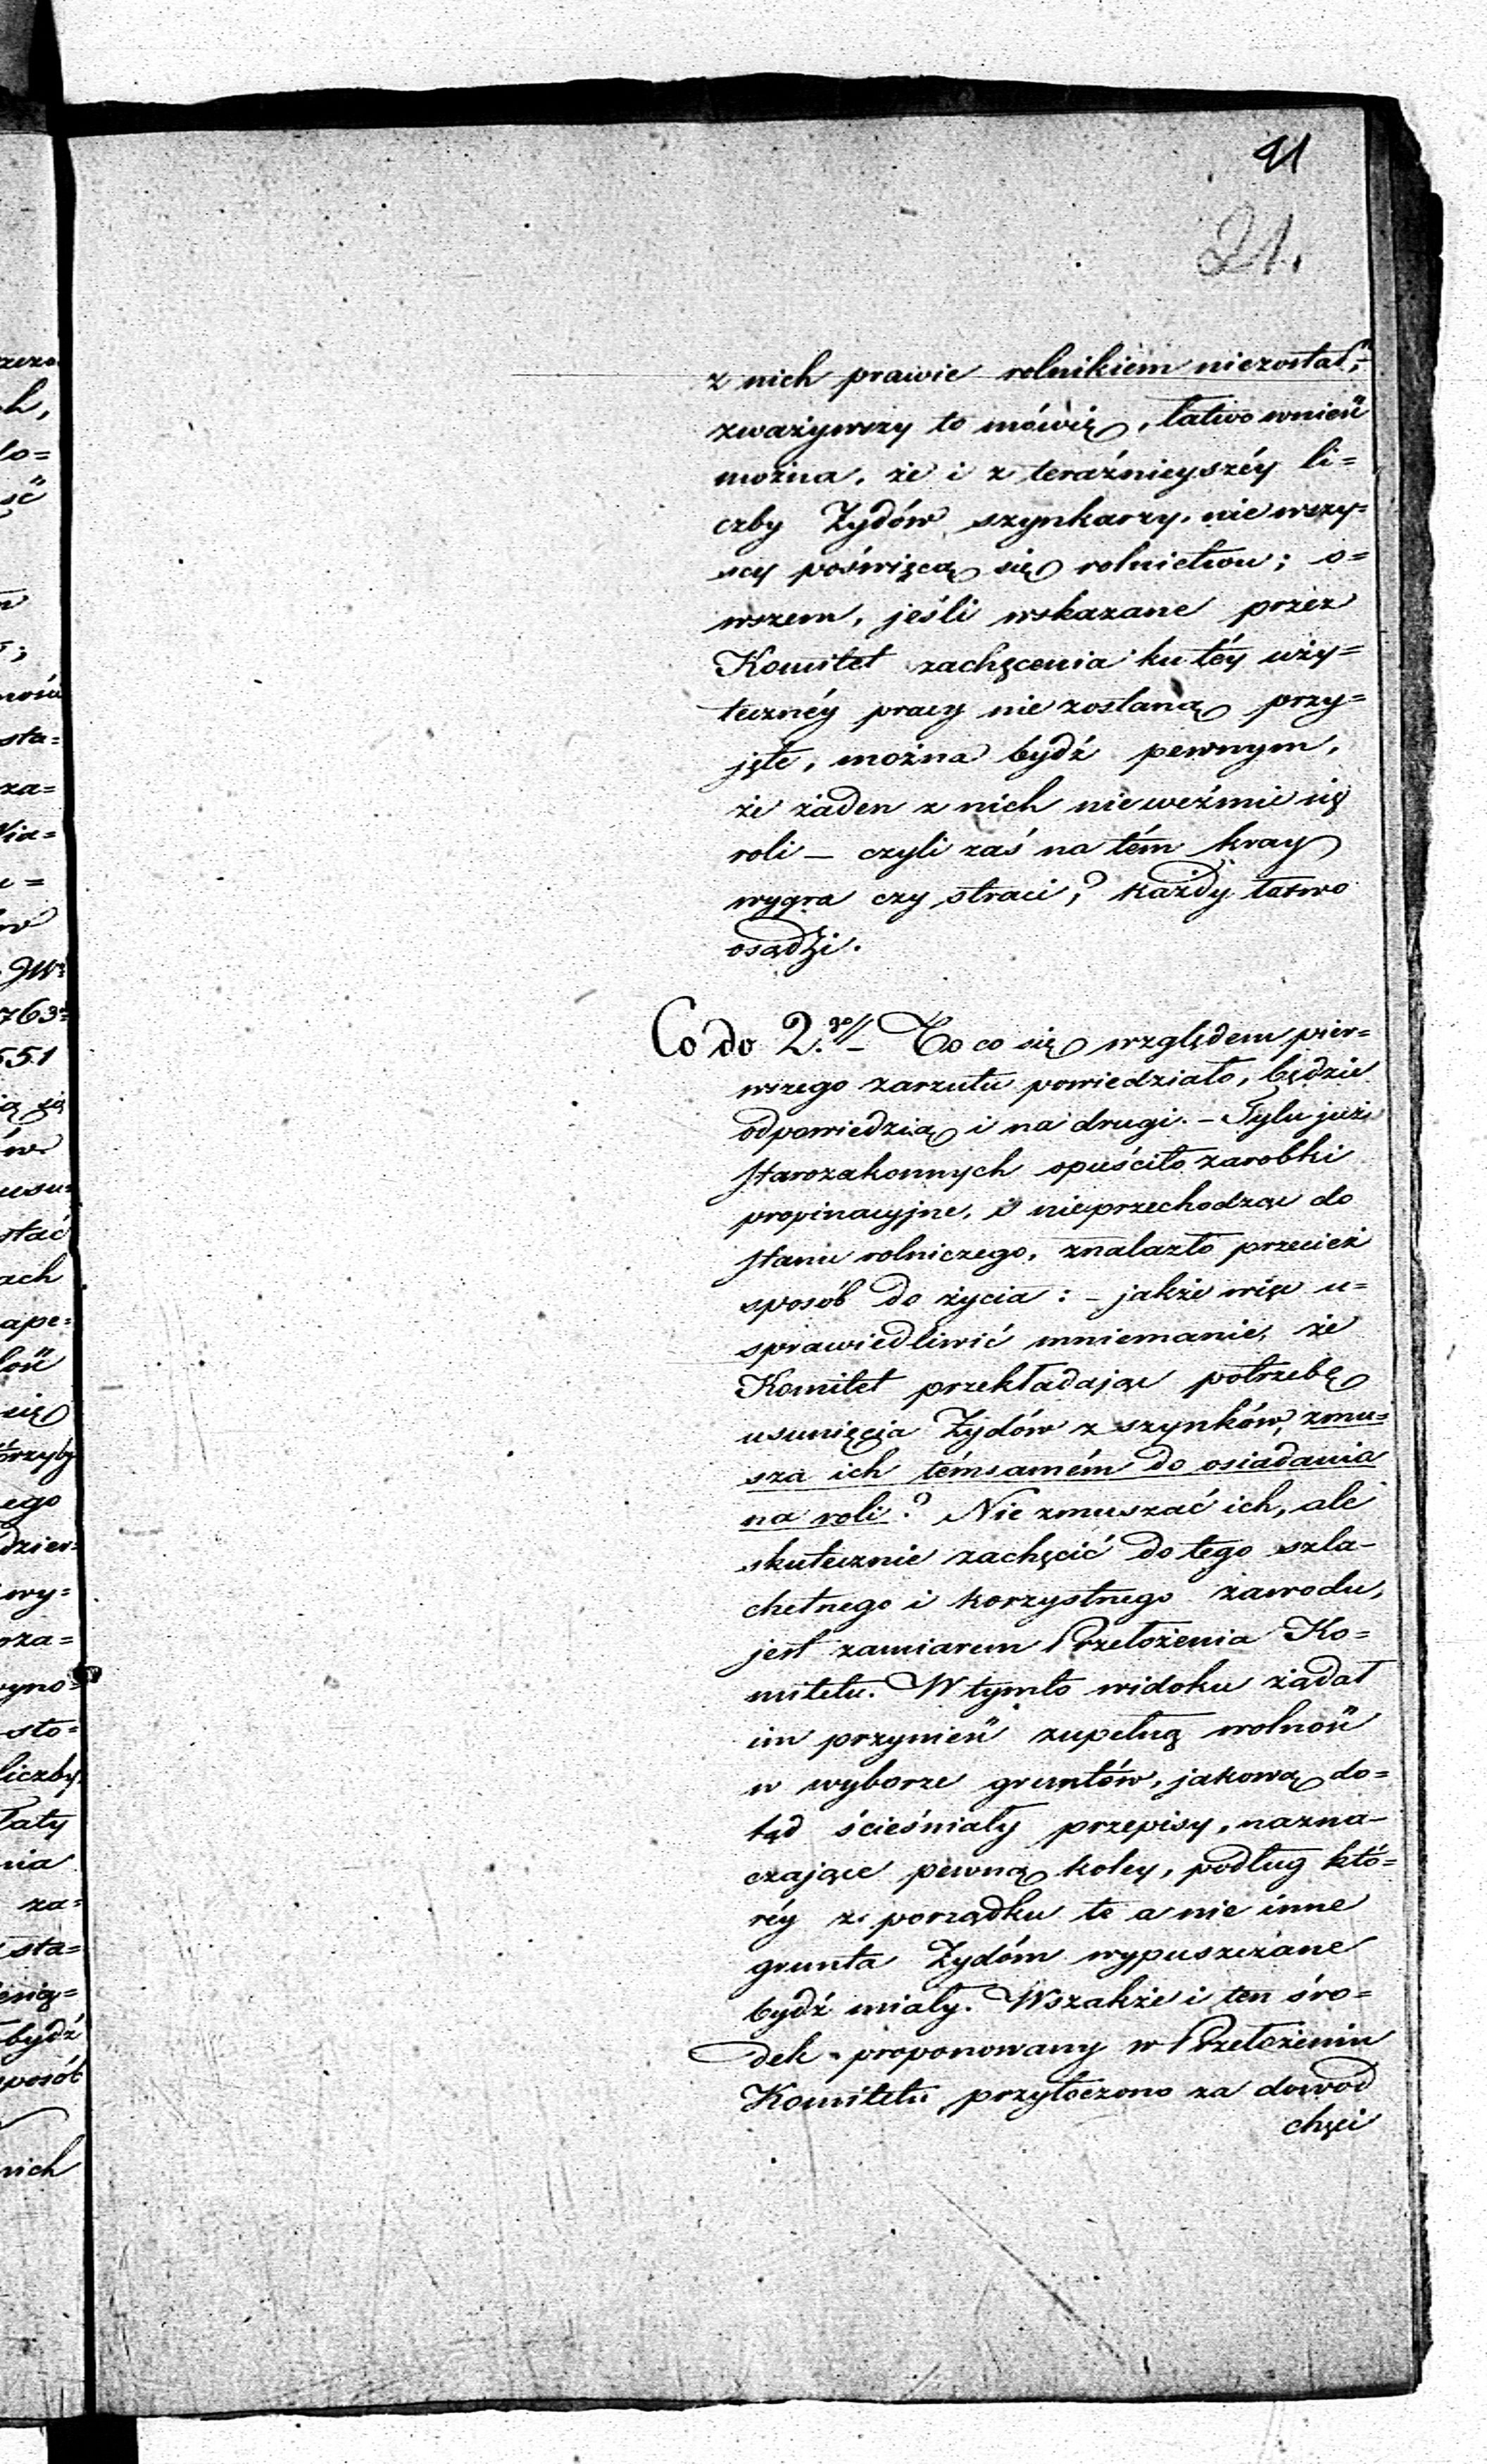 21
21.
z nich prawie rolnikiem niezostał,
zważywszy to mówię, łatwo wnieść
można, że i z teraźnieyszéy li=
czby Żydów szynkarzy, nie wszy=
scy poświęcą się rolnictwu; o=
wszem, jeśli wskazane przez
Komitet zachęcenia ku téy uży=
teczнéy pracy nie zostaną przy=
jęte, można bydź pewnym,
że żaden z nich nie weźmie się
roli — czyli zaś na tém kray
wygra czy straci,? każdy łatwo
osądzi.
Co do 2.go — To co się względem pier=
wszego zarzutu powiedziało, będzie
odpowiedzią i na drugi. — Tylu już
starozakonnych opuściło zarobki
propinacyjne, i nieprzechodząc do
stanu rolniczego, znalazło przecież
sposób do życia: — jakże więc u=
sprawiedliwić mniemanie, że
Komitet przekładając potrzebę
usunięcia Żydów z szynków, zmu=
sza ich témsamém do osiadania
na roli? Nie zmuszać ich, ale
skutecznie zachęcić do tego szla-
chetnego i korzystnego zawodu,
jest zamiarem Przełożenia Ko=
mitetu. W tymto widoku żądał
im przynieść zupełną wolność
w wyborze gruntów, jakową do=
tąd ścieśniały przepisy, nazna-
czające pewną koley, podług któ=
réy z porządku te a nie inne
grunta Żydóm wypuszczane
bydź miały. Wszakże i ten śro=
dek proponowany w Przełożeniu
Komitetu, przytoczono za dowod
chęci
rzeza
h,
ść
sta=
za=
763
551
stać
ach
ape=
się
ego
dzier=
wy=
sto=
liczby
nia
za=
sta=
bydź
sposób
nich